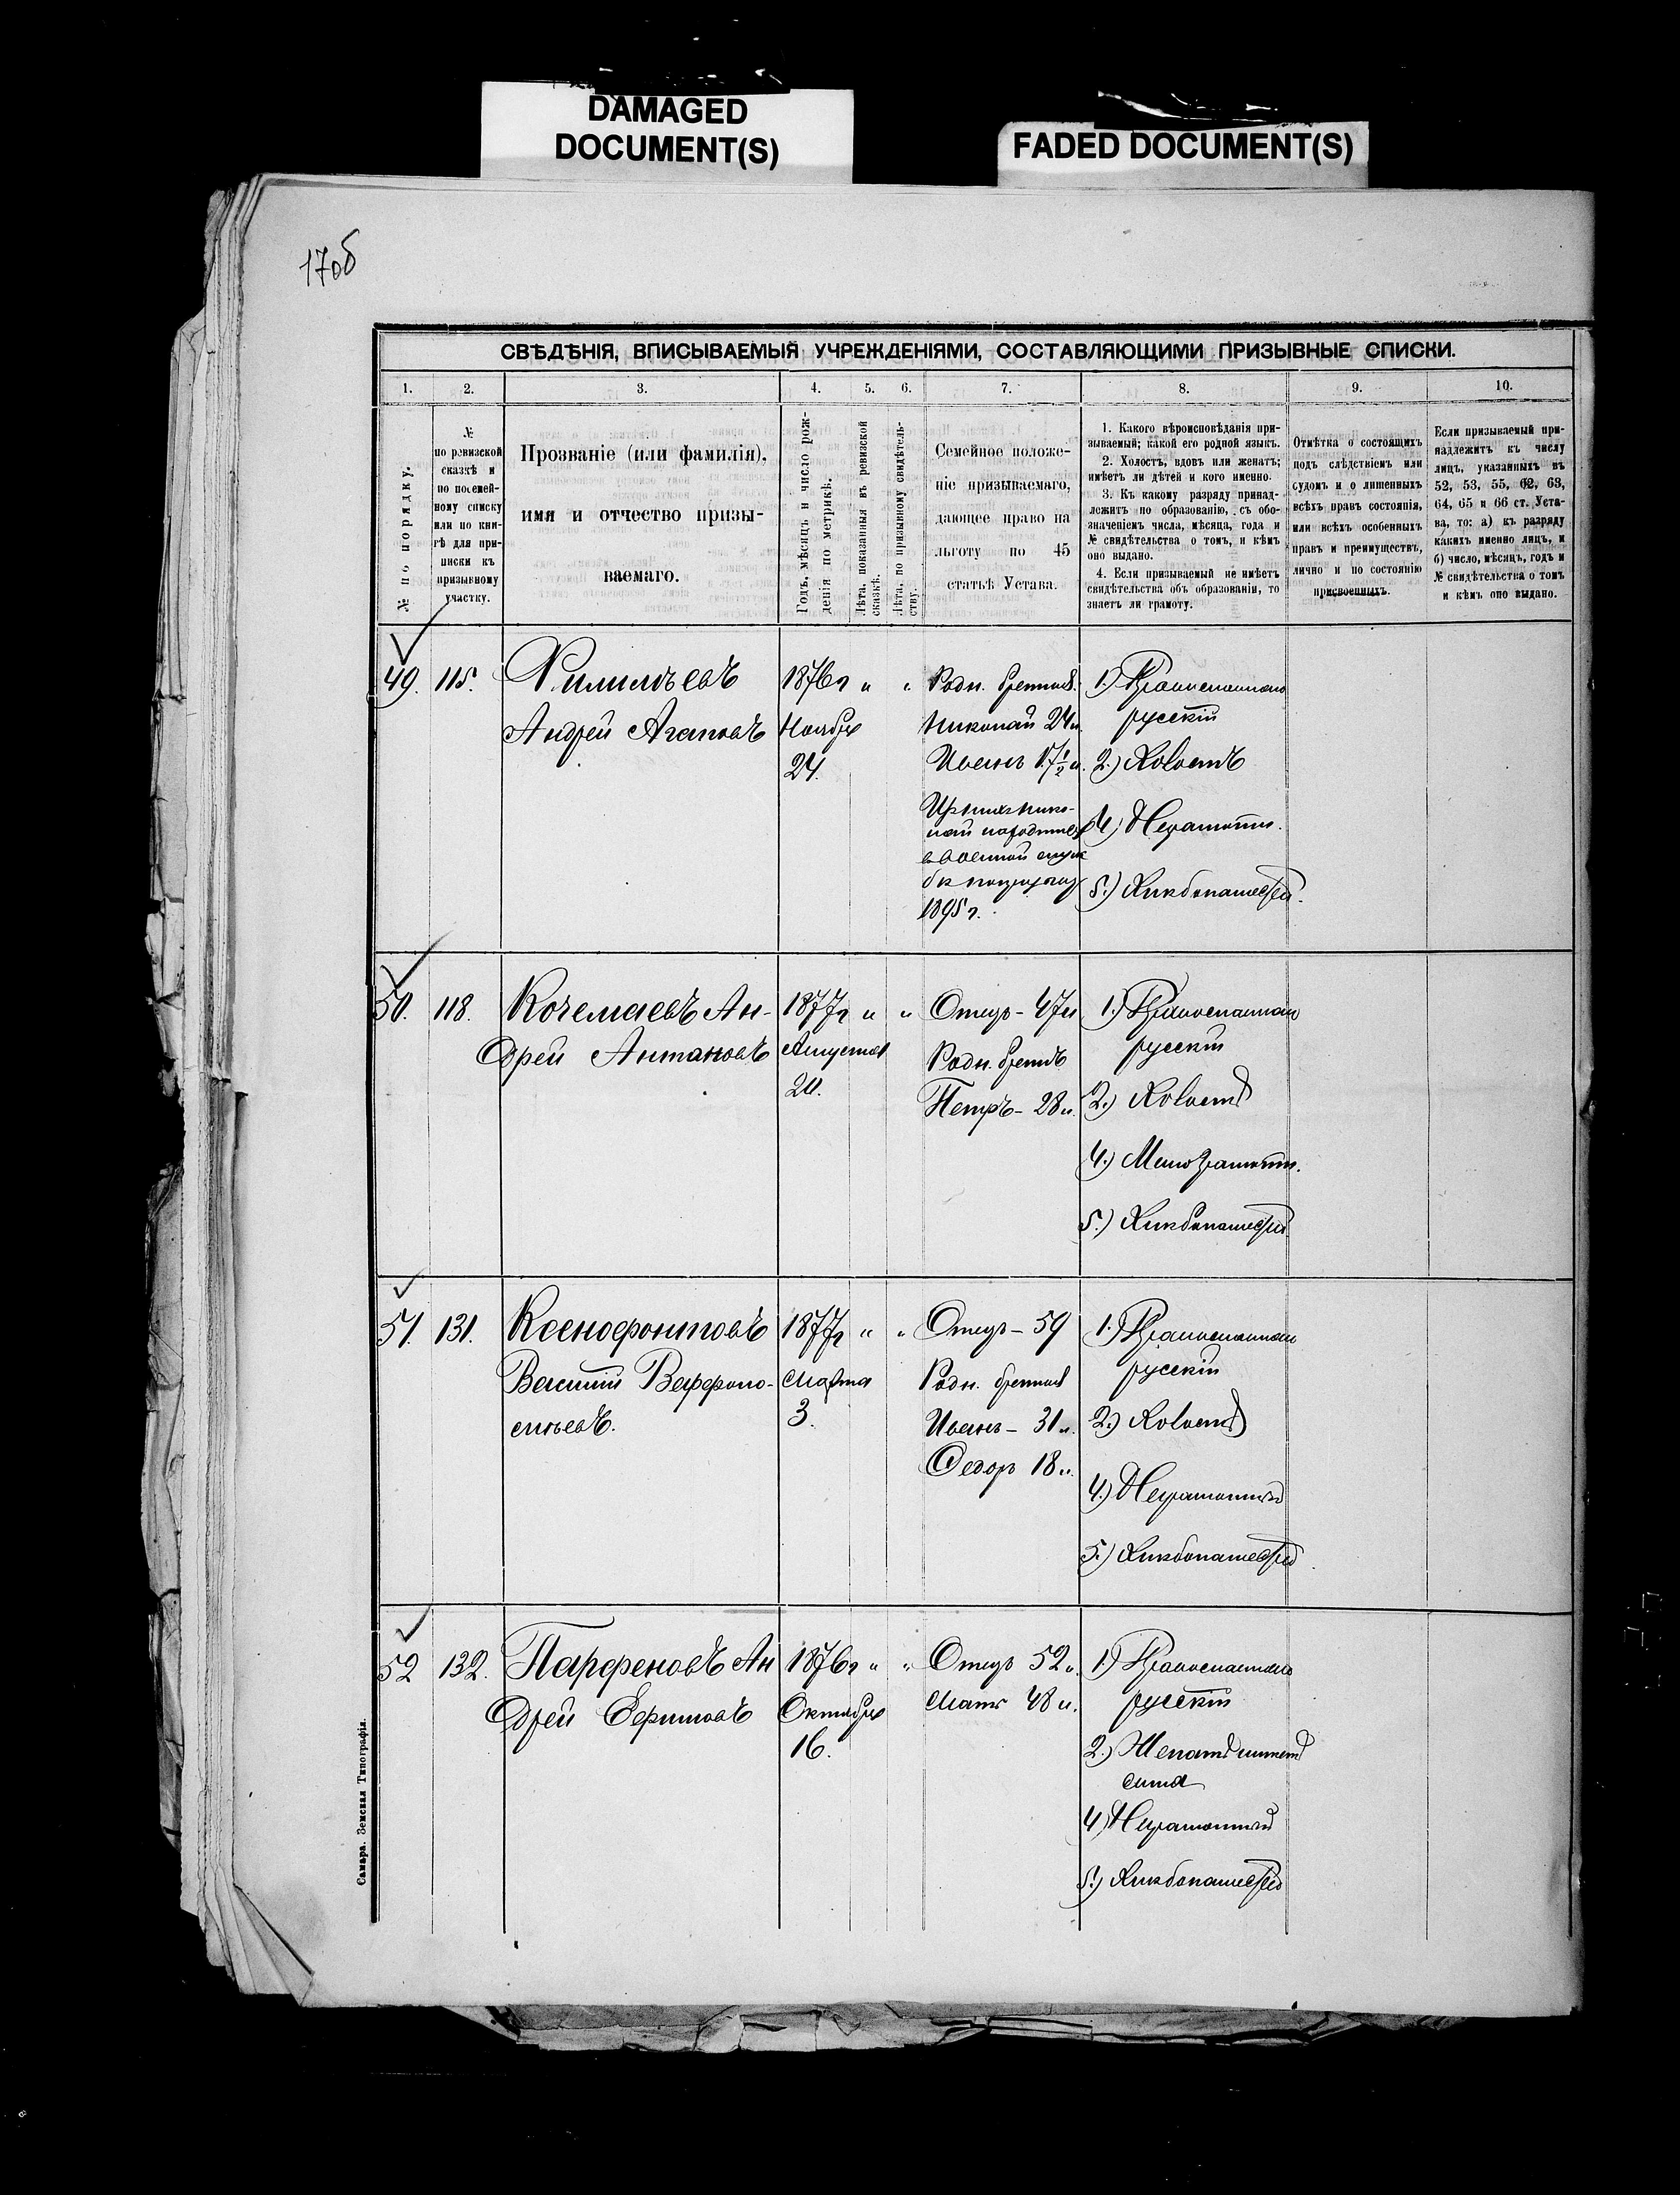 DAMAGED
DOCUMENT(S)
FADED DOCUMENT(S)
17об
СВѢДѢНІЯ, ВПИСЫВАЕМЫЯ УЧРЕЖДЕНІЯМИ, СОСТАВЛЯЮЩИМИ ПРИЗЫВНЫЕ СПИСКИ.
1. 2. 3. 4. 5. 6. 7. 8. 9. 10.
№ по порядку.
№
по ревизской
сказкѣ и
по посемей-
ному списку
или по кни-
гѣ для при-
писки къ
призывному
участку.
Прозваніе (или фамилія),
имя и отчество призы-
ваемаго.
Годъ, мѣсяцъ и число рож-
денія по метрикѣ.
Лѣта, показанныя въ ревизской
сказкѣ.
Лѣта, по призывному свидѣтель-
ству.
Семейное положе-
ніе призываемаго,
дающее право на
льготу по 45
статьѣ Устава.
1. Какого вѣроисповѣданія при-
зываемый; какой его родной языкъ.
2. Холостъ, вдовъ или женатъ;
имѣетъ ли дѣтей и кого именно.
3. Къ какому разряду принад-
лежитъ по образованію, съ обо-
значеніемъ числа, мѣсяца, года и
№ свидѣтельства о томъ, и кѣмъ
оно выдано.
4. Если призываемый не имѣетъ
свидѣтельства объ образованіи, то
знаетъ ли грамоту.
Отмѣтка о состоящихъ
подъ слѣдствіемъ или
судомъ и о лишенныхъ
всѣхъ правъ состоянія,
или всѣхъ особенныхъ
правъ и преимуществъ,
лично и по состоянію
присвоенныхъ.
Если призываемый при-
надлежитъ къ числу
лицъ, указанныхъ въ
52, 53, 55, 62, 63,
64, 65 и 66 ст. Уста-
ва, то: а) къ разряду
какихъ именно лицъ, и
б) число, мѣсяцъ, годъ и
№ свидѣтельства о томъ
и кѣмъ оно выдано.
49. 115.
Филипьевъ
Андрей Агаповъ
1876 г " "
Ноября
24.
Родн. братья.
Николай 24 л.
Иванъ 17½ л.
нико-
лай находится
в военной служ
бѣ
1895 г.
1.) Православнаго
русскій
2.) Холостъ
4) Неграмотн.
5.) Хлѣбопашецъ.
50. 118.
Кочемаевъ Ан-
дрей Антоновъ
1877 г " "
Августа
20.
Отцу - 47 л
Родн. братъ
Петръ - 28 л.
1.) Православнаго
русскій
2.) Холостъ
4.) Малограмотн.
5.) Хлѣбопашецъ
51. 131.
Ксенофонтовъ
Василій Варфоло-
меевъ.
1877 г " "
Марта
3.
Отцу - 59
Родн. братья
Иванъ - 31 л.
Федоръ 18 л.
1.) Православнаго
русскій
2.) Холостъ
4.) Неграмотный
5.) Хлѣбопашецъ
52 132.
Парфеновъ Ан
дрей Ефимовъ
1876 г " "
Октября
16.
Отцу 52 л.
Мать 48 л.
1.) Православнаго
русскій
2.) Женатъ имѣетъ
сына
4) Неграмотный
5.) Хлѣбопашецъ
Самара. Земская Типографія.